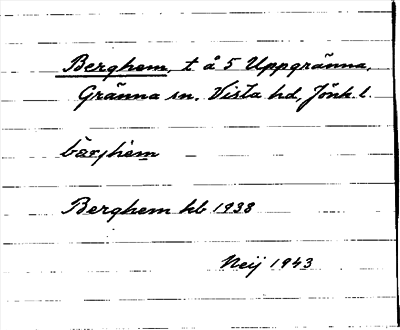 Berghem, t å 5 Uppgränna,
Gränna sn. Vista hd, Jönk. l.
bärjhem
Berghem kb 1938
Neij 1943